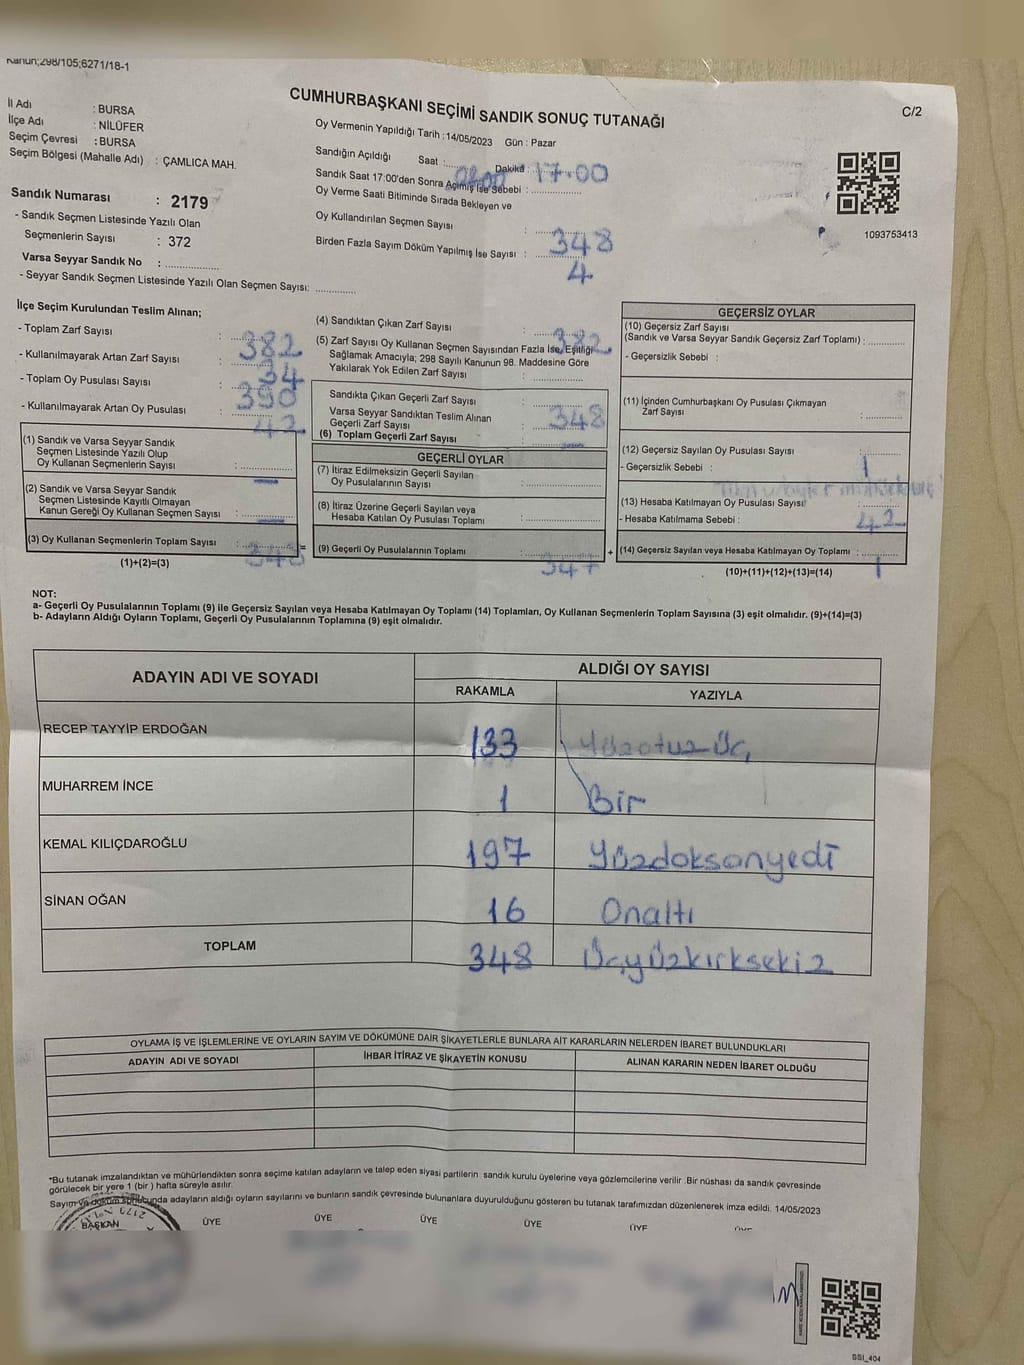 Kanun;298/105;6271/18-1
CUMHURBAŞKANI SEÇİMİ SANDIK SONUÇ TUTANAĞI
C/2
İl Adı : BURSA
İlçe Adı : NİLÜFER
Seçim Çevresi : BURSA
Seçim Bölgesi (Mahalle Adı) : ÇAMLICA MAH.
Sandık Numarası : 2179
- Sandık Seçmen Listesinde Yazılı Olan
Seçmenlerin Sayısı : 372
Varsa Seyyar Sandık No : ................
- Seyyar Sandık Seçmen Listesinde Yazılı Olan Seçmen Sayısı: ............
Oy Vermenin Yapıldığı Tarih : 14/05/2023 Gün : Pazar
Sandığın Açıldığı Saat :..... Dakika : 17.00
Sandık Saat 17:00'den Sonra Açılmış İse Sebebi : ................
Oy Verme Saati Bitiminde Sırada Bekleyen ve
Oy Kullandırılan Seçmen Sayısı : 348
Birden Fazla Sayım Döküm Yapılmış İse Sayısı : 4
1093753413
İlçe Seçim Kurulundan Teslim Alınan;
- Toplam Zarf Sayısı : 382
- Kullanılmayarak Artan Zarf Sayısı : 34
- Toplam Oy Pusulası Sayısı : 390
- Kullanılmayarak Artan Oy Pusulası : 42
(1) Sandık ve Varsa Seyyar Sandık
Seçmen Listesinde Yazılı Olup
Oy Kullanan Seçmenlerin Sayısı :
(2) Sandık ve Varsa Seyyar Sandık
Seçmen Listesinde Kayıtlı Olmayan
Kanun Gereği Oy Kullanan Seçmen Sayısı :
(3) Oy Kullanan Seçmenlerin Toplam Sayısı :
(1)+(2)=(3)
(4) Sandıktan Çıkan Zarf Sayısı : 382
(5) Zarf Sayısı Oy Kullanan Seçmen Sayısından Fazla İse, Eşitliği
Sağlamak Amacıyla; 298 Sayılı Kanunun 98. Maddesine Göre
Yakılarak Yok Edilen Zarf Sayısı :
Sandıkta Çıkan Geçerli Zarf Sayısı :
Varsa Seyyar Sandıktan Teslim Alınan
Geçerli Zarf Sayısı : 348
(6) Toplam Geçerli Zarf Sayısı :
GEÇERLİ OYLAR
(7) İtiraz Edilmeksizin Geçerli Sayılan
Oy Pusulalarının Sayısı :
(8) İtiraz Üzerine Geçerli Sayılan veya
Hesaba Katılan Oy Pusulası Toplamı :
(9) Geçerli Oy Pusulalarının Toplamı : 347
GEÇERSİZ OYLAR
(10) Geçersiz Zarf Sayısı
(Sandık ve Varsa Seyyar Sandık Geçersiz Zarf Toplamı) :
- Geçersizlik Sebebi :
(11) İçinden Cumhurbaşkanı Oy Pusulası Çıkmayan
Zarf Sayısı :
(12) Geçersiz Sayılan Oy Pusulası Sayısı : 1
- Geçersizlik Sebebi :
(13) Hesaba Katılmayan Oy Pusulası Sayısı
- Hesaba Katılmama Sebebi : 42
(14) Geçersiz Sayılan veya Hesaba Katılmayan Oy Toplamı : 1
(10)+(11)+(12)+(13)=(14)
NOT:
a- Geçerli Oy Pusulalarının Toplamı (9) ile Geçersiz Sayılan veya Hesaba Katılmayan Oy Toplamı (14) Toplamları, Oy Kullanan Seçmenlerin Toplam Sayısına (3) eşit olmalıdır. (9)+(14)=(3)
b- Adayların Aldığı Oyların Toplamı, Geçerli Oy Pusulalarının Toplamına (9) eşit olmalıdır.
ADAYIN ADI VE SOYADI ALDIĞI OY SAYISI
RAKAMLA YAZIYLA
RECEP TAYYİP ERDOĞAN 133 Yüzotuz Üç
MUHARREM İNCE 1 Bir
KEMAL KILIÇDAROĞLU 197 Yüzdoksanyedi
SİNAN OĞAN 16 Onaltı
TOPLAM 348 Üçyüzkırksekiz
OYLAMA İŞ VE İŞLEMLERİNE VE OYLARIN SAYIM VE DÖKÜMÜNE DAİR ŞİKAYETLERLE BUNLARA AİT KARARLARIN NELERDEN İBARET BULUNDUKLARI
ADAYIN ADI VE SOYADI İHBAR İTİRAZ VE ŞİKAYETİN KONUSU ALINAN KARARIN NEDEN İBARET OLDUĞU
*Bu tutanak imzalandıktan ve mühürlendikten sonra seçime katılan adayların ve talep eden siyasi partilerin sandık kurulu üyelerine veya gözlemcilerine verilir .Bir nüshası da sandık çevresinde
görülecek bir yere 1 (bir ) hafta süreyle asılır.
Sayım ve döküm sonucunda adayların aldığı oyların sayılarını ve bunların sandık çevresinde bulunanlara duyurulduğunu gösteren bu tutanak tarafımızdan düzenlenerek imza edildi. 14/05/2023
BAŞKAN ÜYE ÜYE ÜYE ÜYE ÜYE ÜYE
SSI_404